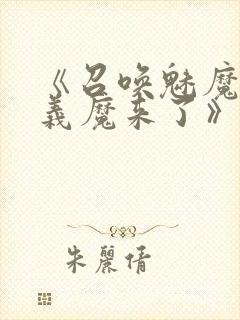 《召唤魅魔
義魔来了》
朱麗倩